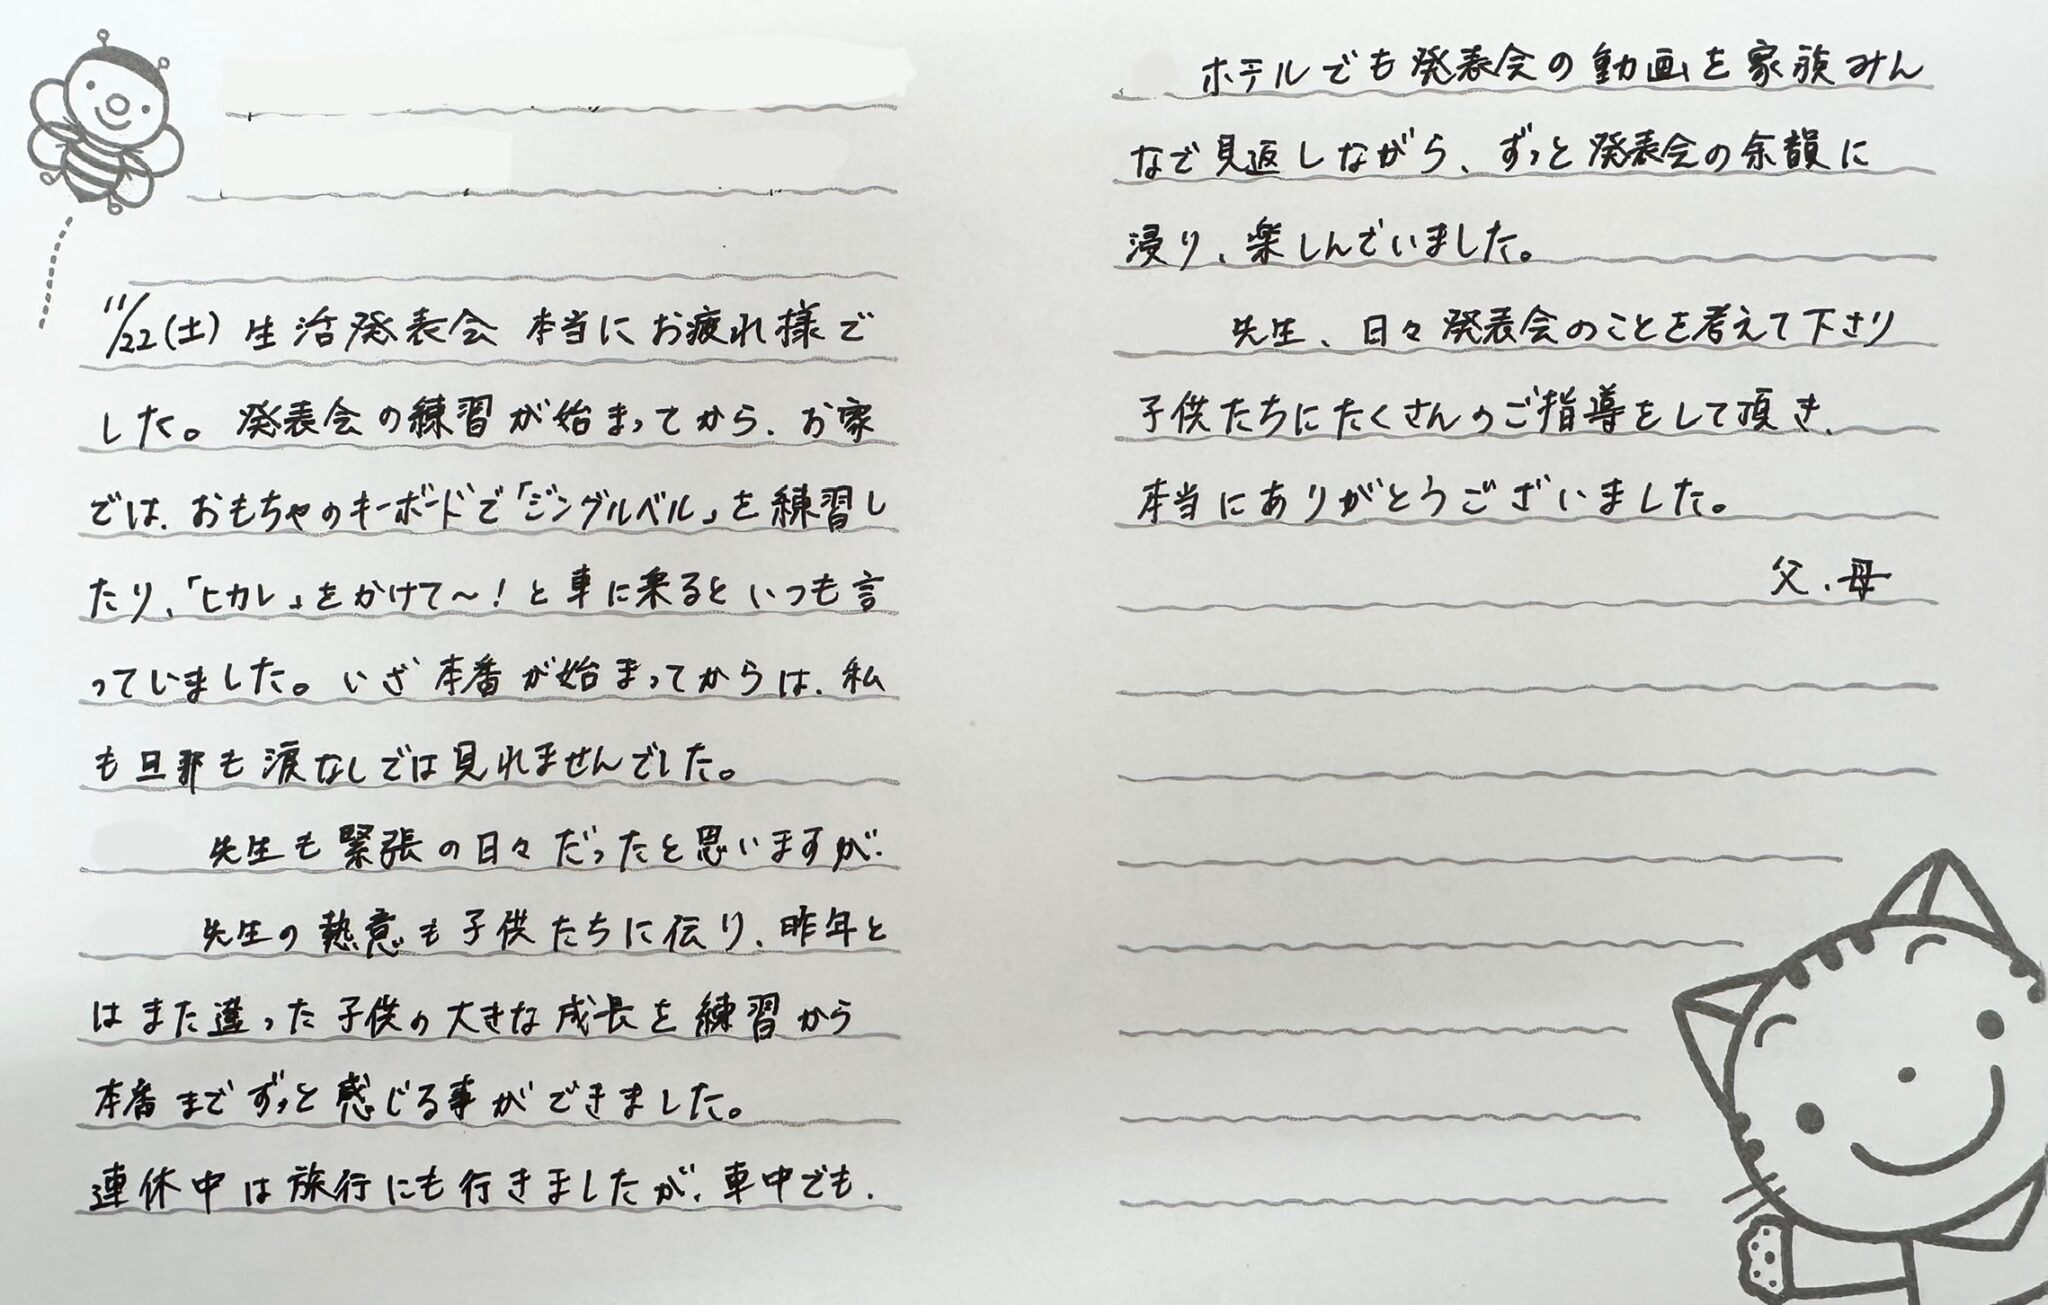 11/22(土) 生活発表会 本当にお疲れ様で
した。発表会の練習が始まってから、お家
では、おもちゃのキーボードで「ジングルベル」を練習し
たり、「ヒカレ」をかけて〜！と車に乗るといつも言
っていました。いざ本番が始まってからは、私
も旦那も涙なしでは見れませんでした。
先生も緊張の日々だったと思いますが、
先生の熱意も子供たちに伝り、昨年と
はまた違った子供の大きな成長を練習から
本番までずっと感じる事ができました。
連休中は旅行にも行きましたが、車中でも、
ホテルでも発表会の動画を家族みん
なで見返しながら、ずっと発表会の余韻に
浸り、楽しんでいました。
先生、日々発表会のことを考えて下さり
子供たちにたくさんのご指導をして頂き、
本当にありがとうございました。
父、母